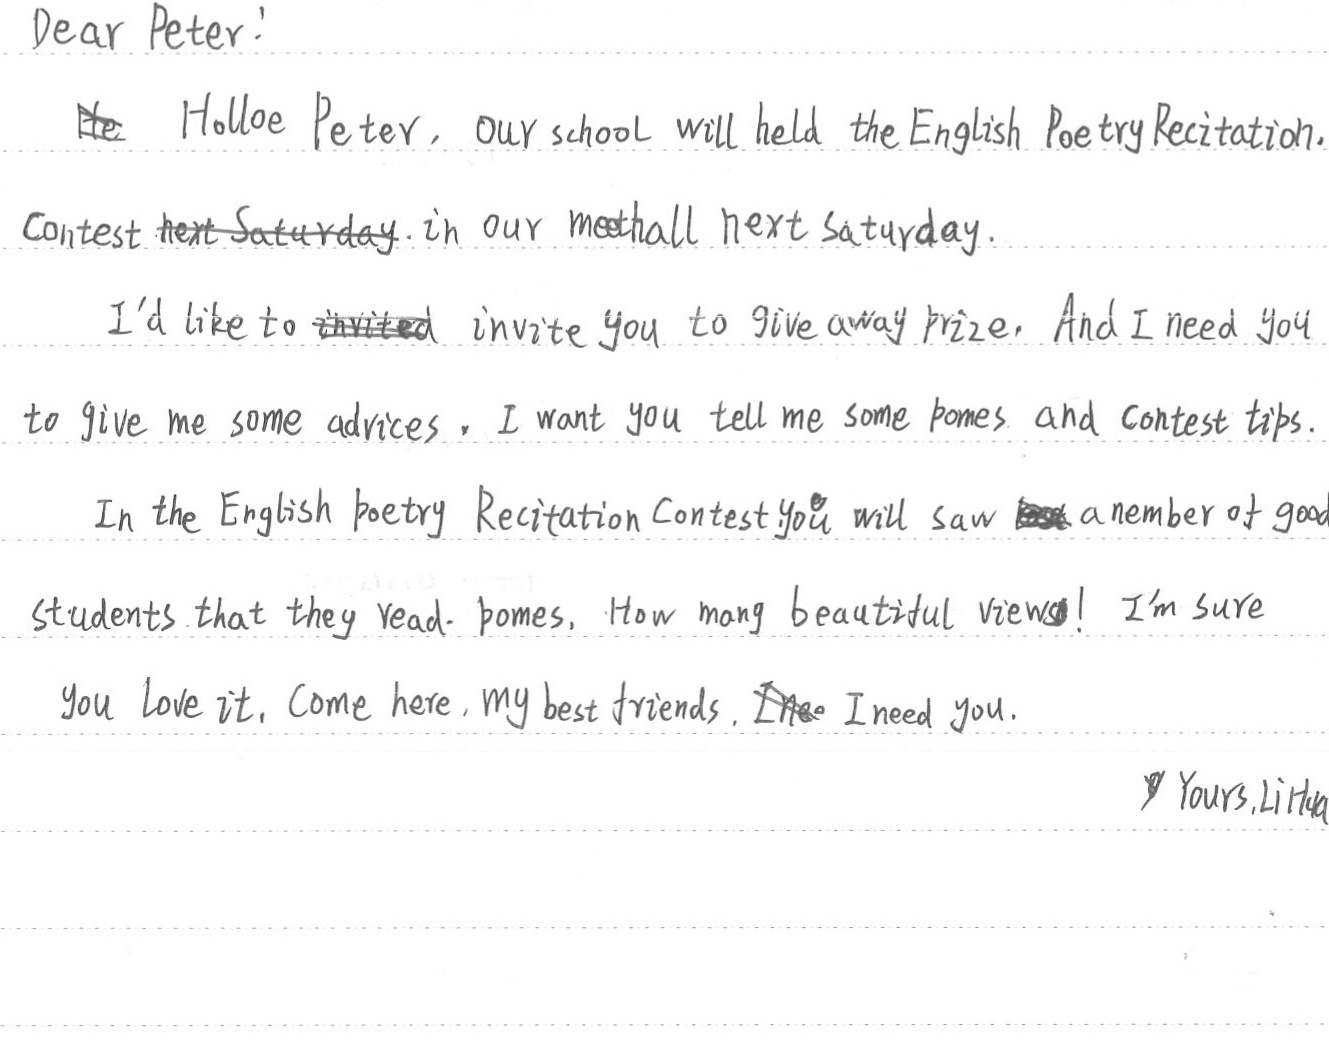 Dear Peter!
Holloe Peter, our school will held the English Poetry Recitation.
Contest in our meethall next Saturday.
I'd like to invite you to give away prize. And I need you
to give me some advices. I want you tell me some pomes and contest tips.
In the English poetry Recitation Contest you will saw a nember of good
students that they read. pomes. How mang beautiful views! I'm sure
you love it. Come here, my best friends. I need you.
Yours, Li Hua